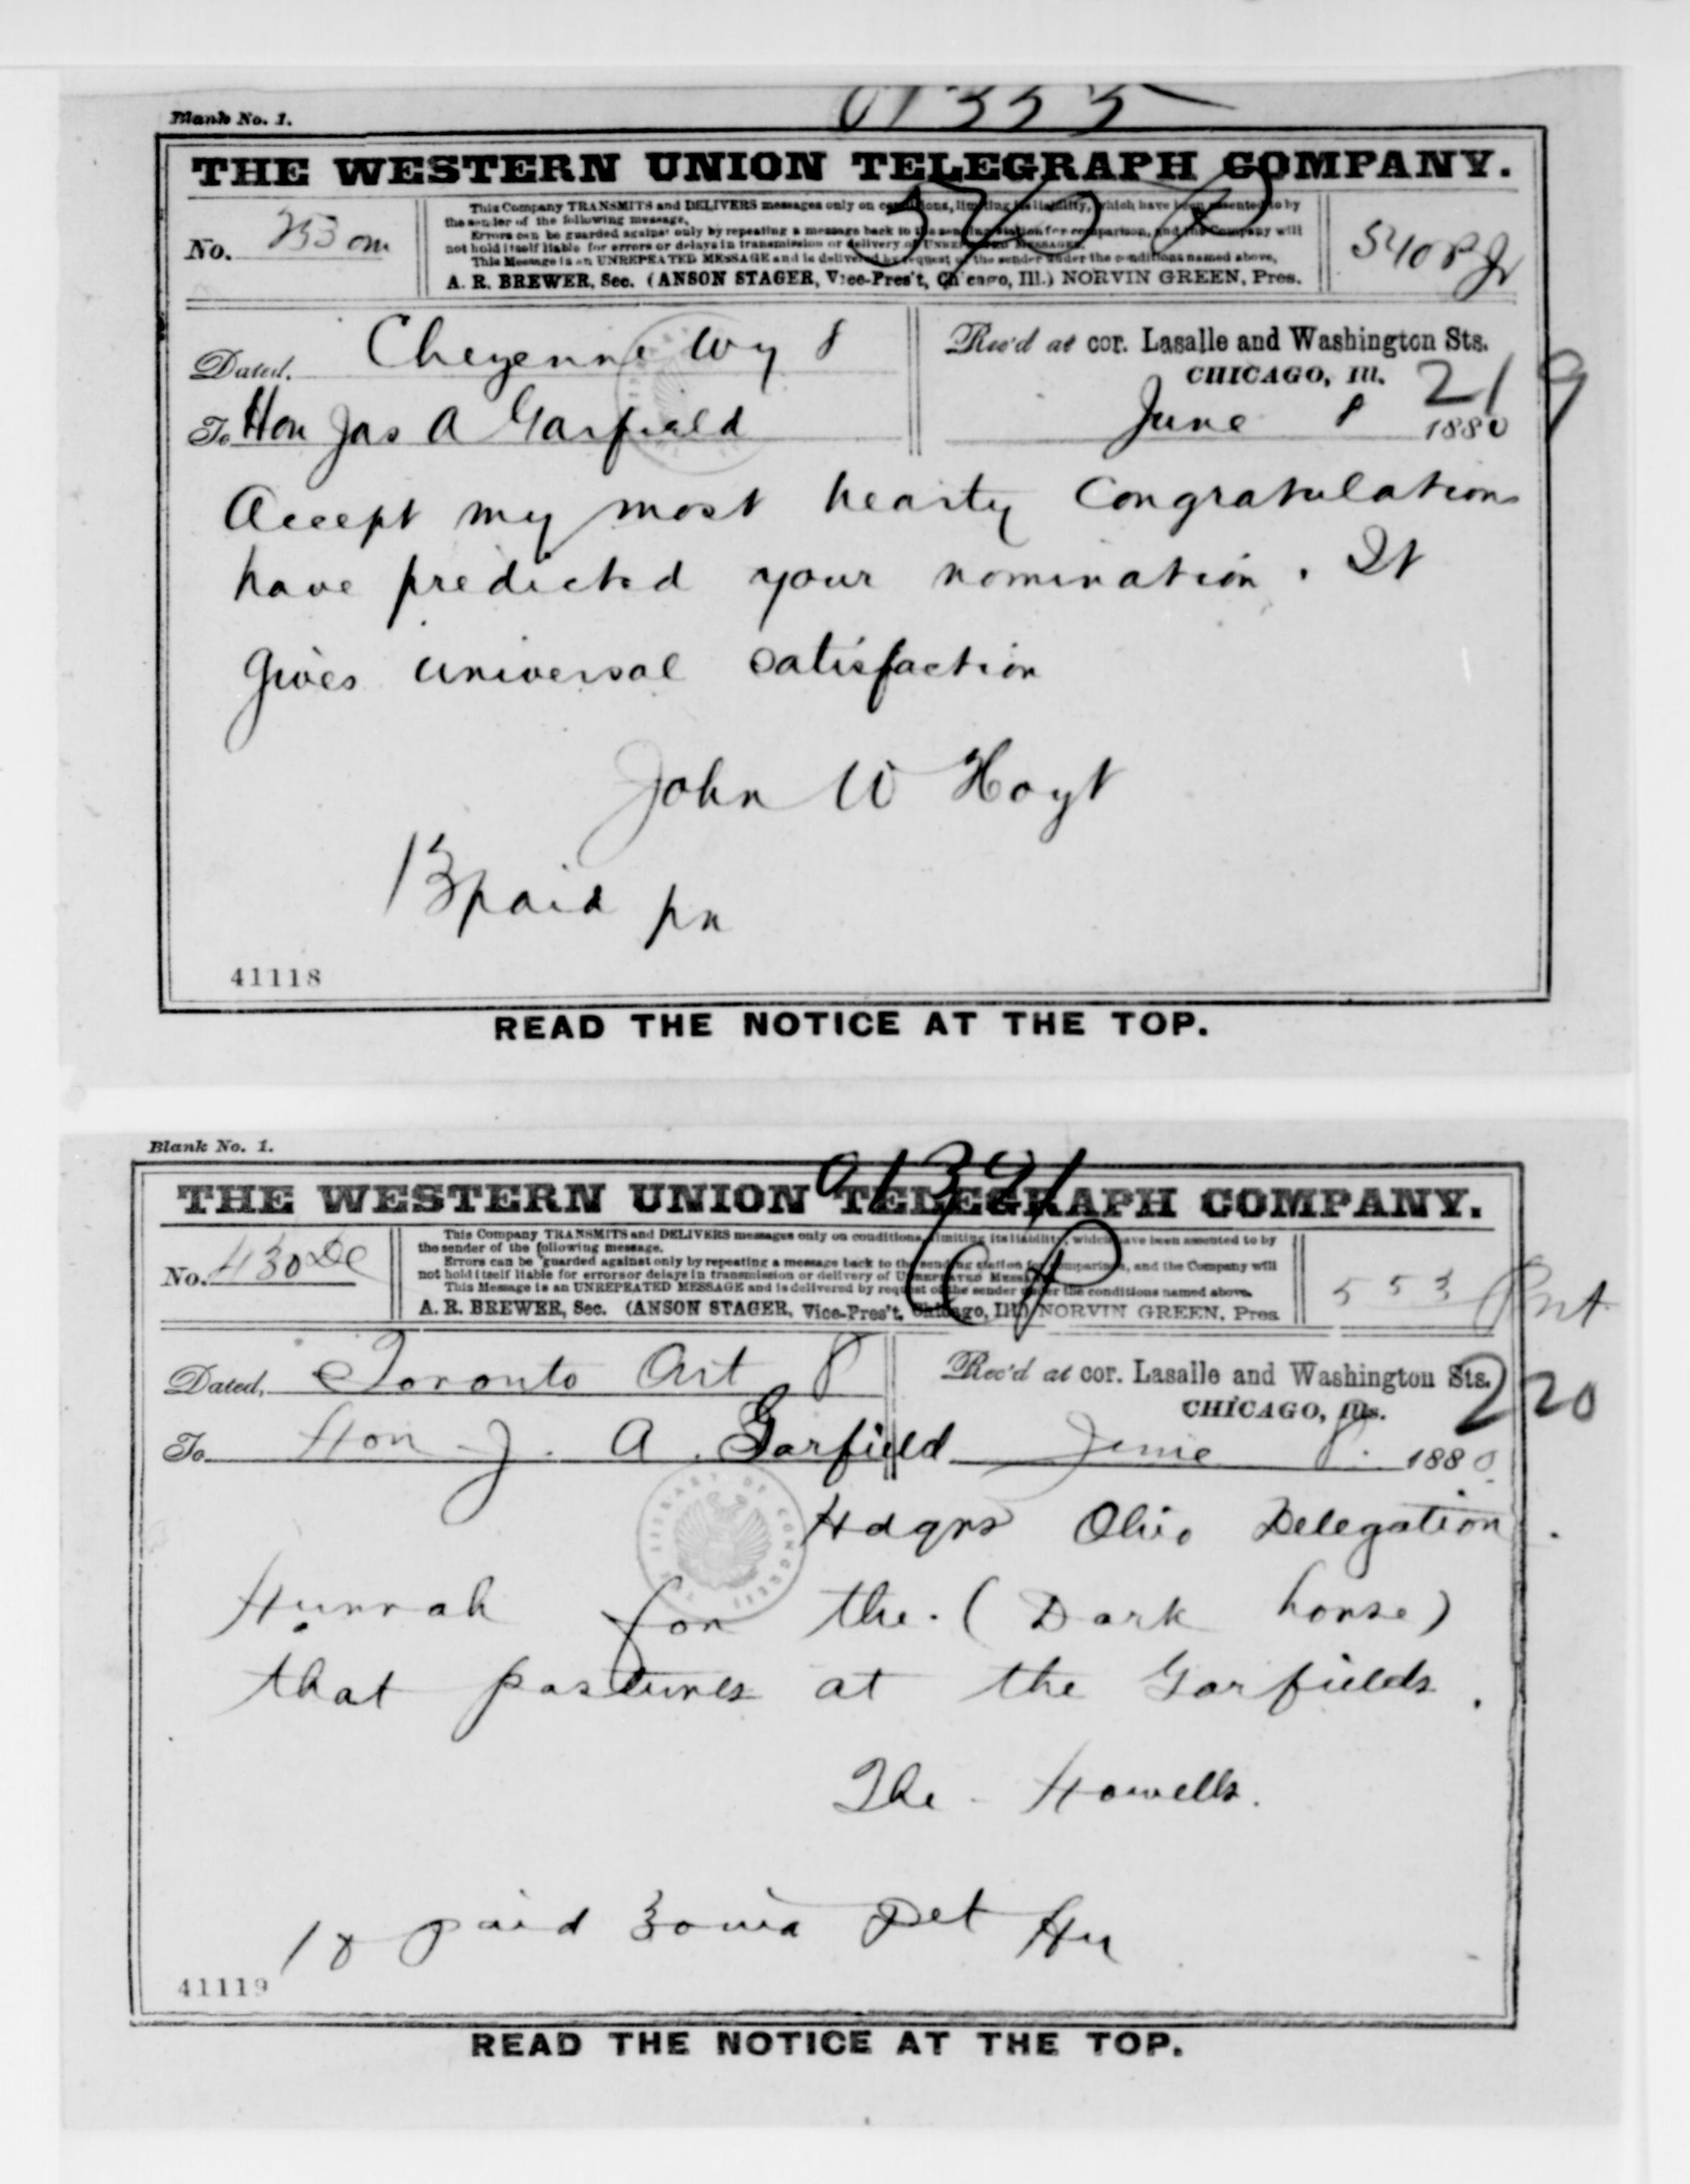 Blank No. 1.
01355
THE WESTERN UNION TELEGRAPH COMPANY.
No. 253 om
This Company TRANSMITS and DELIVERS messages only on conditions, limiting its liability, which have been assented to by
the sender of the following message.
Errors can be guarded against only by repeating a message back to the sending station for comparison, and the Company will
not hold itself liable for errors or delays in transmission or delivery of UNREPEATED MESSAGES.
This Message is an UNREPEATED MESSAGE and is delivered by request of the sender under the conditions named above,
A. R. BREWER, Sec. (ANSON STAGER, Vice-Pres't, Chicago, Ill.) NORVIN GREEN, Pres.
540P
Dated. Cheyenne Wy 8
Rec'd at cor. Lasalle and Washington Sts.
CHICAGO, Ill. 219
To Hon Jas A Garfield
June 8 1880
Accept my most hearty Congratulations
have predicted your nomination. It
gives universal satisfaction
John W Hoyt
13 paid
41118
READ THE NOTICE AT THE TOP.
Blank No. 1.
01391
THE WESTERN UNION TELEGRAPH COMPANY.
No. 430 De
This Company TRANSMITS and DELIVERS messages only on conditions, limiting its liability, which have been assented to by
the sender of the following message.
Errors can be guarded against only by repeating a message back to the sending station for comparison, and the Company will
not hold itself liable for errors or delays in transmission or delivery of UNREPEATED MESSAGES.
This Message is an UNREPEATED MESSAGE and is delivered by request of the sender under the conditions named above.
A. R. BREWER, Sec. (ANSON STAGER, Vice-Pres't, Chicago, Ill) NORVIN GREEN, Pres
553
Dated, Toronto Ont 8
Rec'd at cor. Lasalle and Washington Sts.
CHICAGO, Ills. 220
To Hon J. A. Garfield June 8. 1880
Hdqrs Ohio Delegation
LIBRARY OF CONGRESS
Hurrah for the (Dark horse)
that pastures at the Garfields.
The Howells.
18 paid
41119
READ THE NOTICE AT THE TOP.